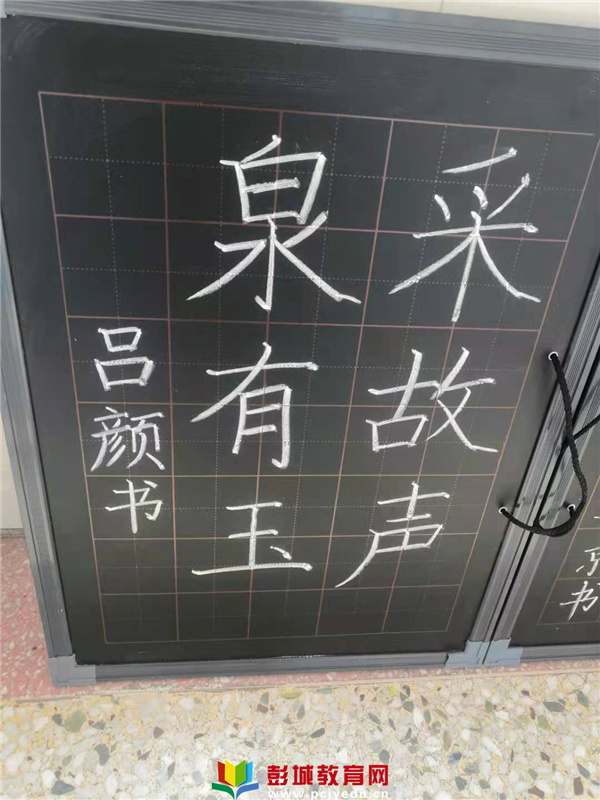 采故声
泉有玉
吕颜书
京书
彭城教育网
www.pcjyedu.cn